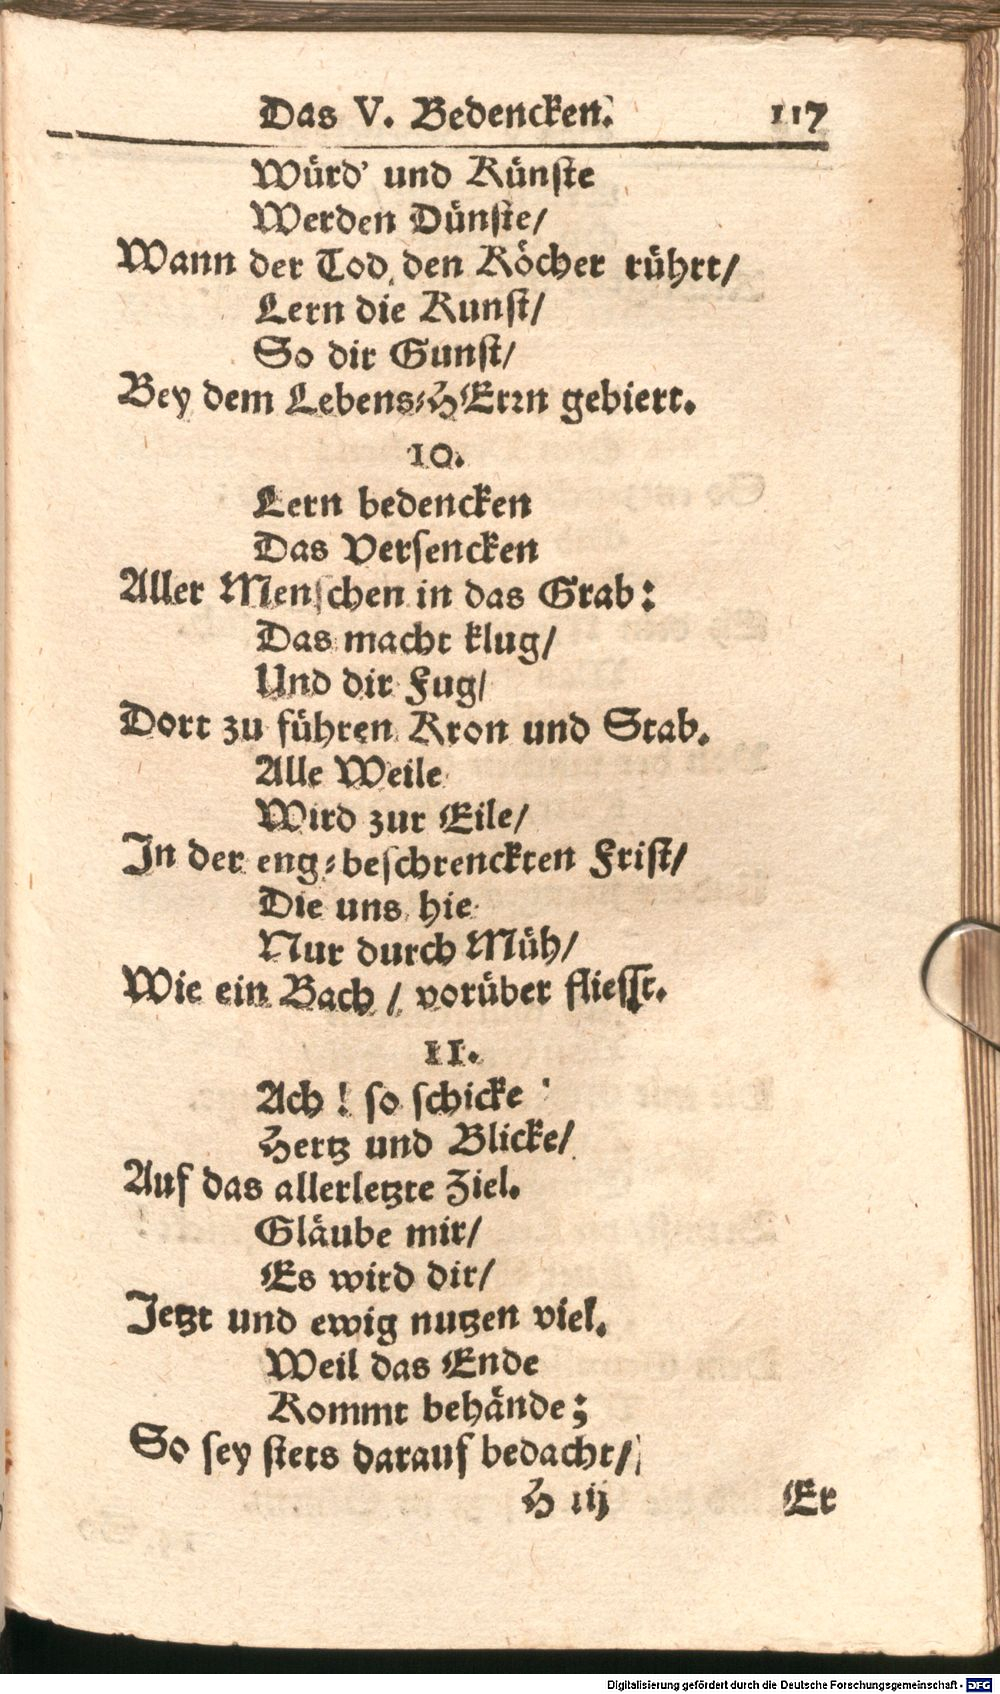 Das V. Bedencken. 117
Würd' und Künste
Werden Dünste/
Wann der Tod den Köcher rührt/
Lern die Kunst/
So dir Gunst/
Bey dem Lebens-HErrn gebiert.
10.
Lern bedencken
Das Versencken
Aller Menschen in das Grab:
Das macht klug/
Und dir Fug/
Dort zu führen Kron und Stab.
Alle Weile
Wird zur Eile/
In der eng-beschrenckten Frist/
Die uns hie
Nur durch Müh/
Wie ein Bach / vorüber fliesst.
11.
Ach! so schicke
Hertz und Blicke/
Auf das allerletzte Ziel.
Gläube mir/
Es wird dir/
Jetzt und ewig nutzen viel.
Weil das Ende
Kommt behände;
So sey stets darauf bedacht/
H iij Er
Digitalisierung gefördert durch die Deutsche Forschungsgemeinschaft - DFG